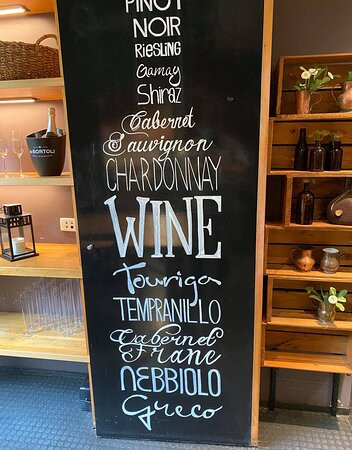 PINOT
NOIR
RIESLING
Gamay
Shiraz
Cabernet
Sauvignon
CHARDONNAY
WINE
Touriga
TEMPRANILLO
Cabernet
Franc
NEBBIOLO
Greco
DE BORTOLI